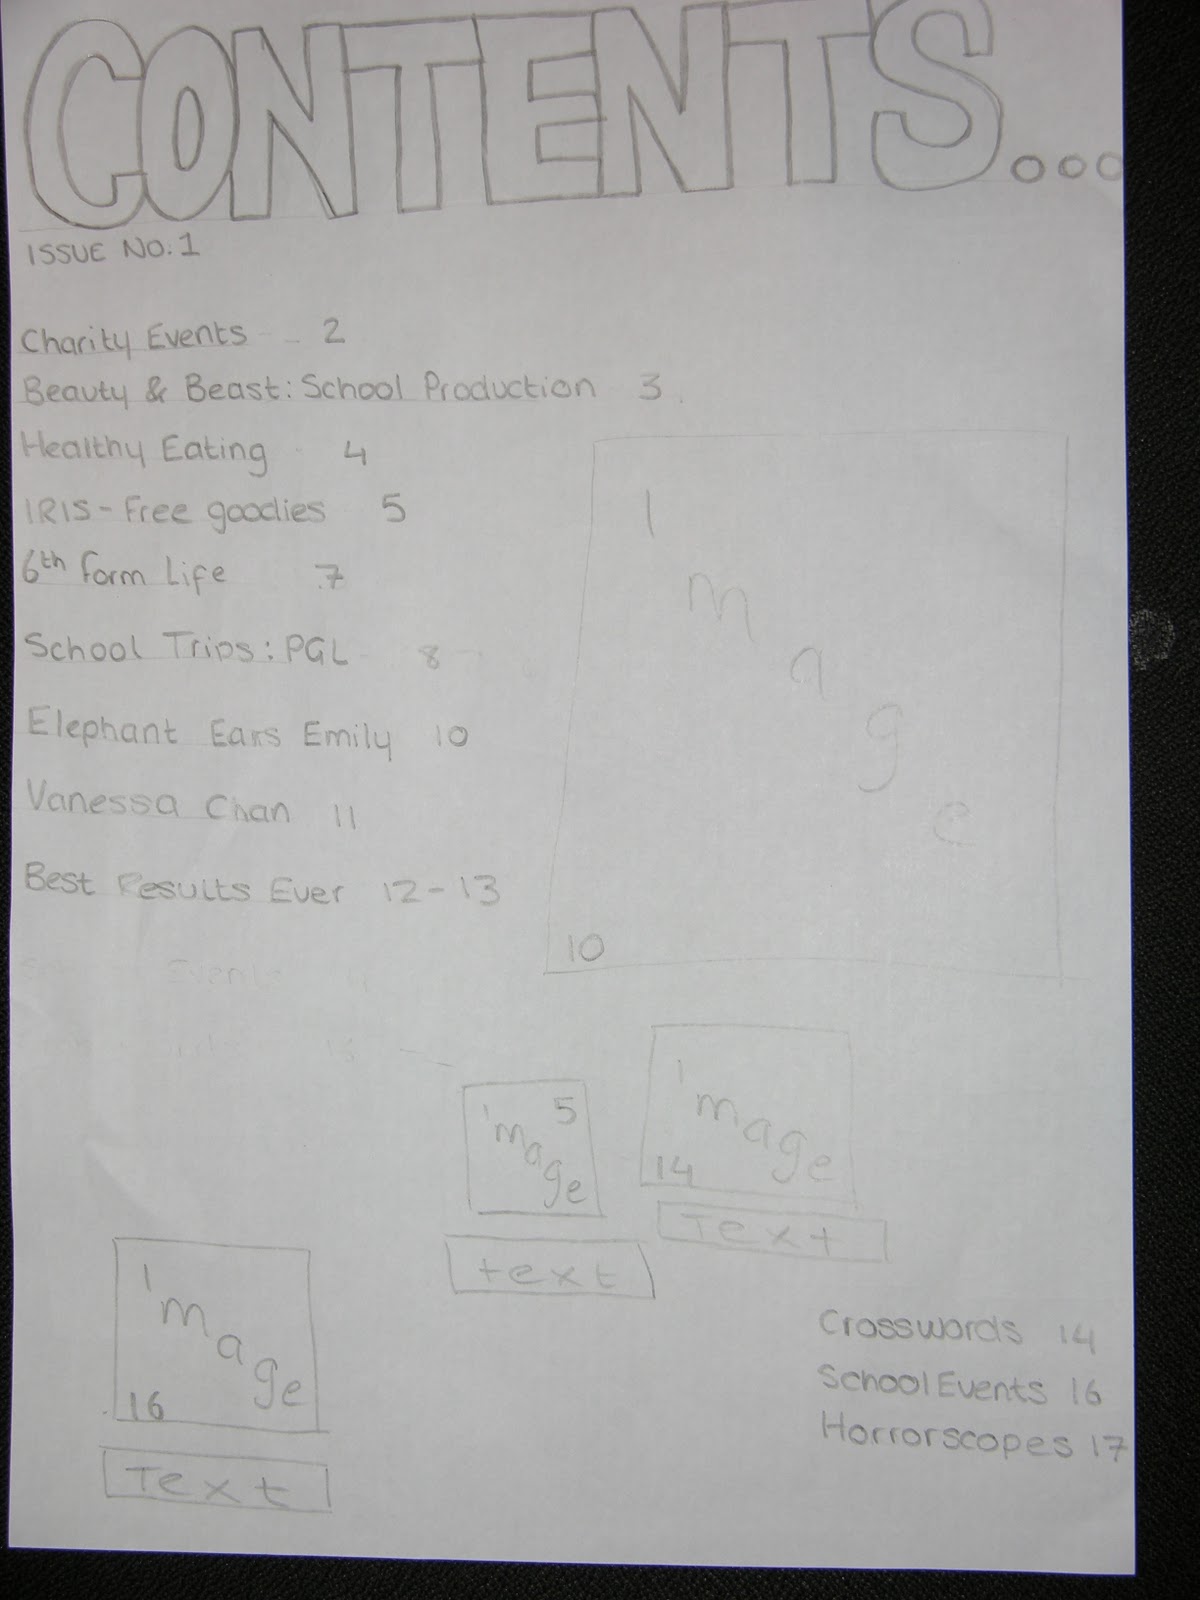 CONTENTS...
ISSUE NO.1
Charity Events 2
Beauty & Beast: School Production 3
Healthy Eating 4
IRIS - Free goodies 5
6th form Life 7
School Trips: PGL 8
Elephant Ears Emily 10
Vanessa Chan 11
Best Results Ever 12-13
Events
Image
10
Image
5
text
Image
14
Text
Image
16
Text
Crosswords 14
School Events 16
Horrorscopes 17